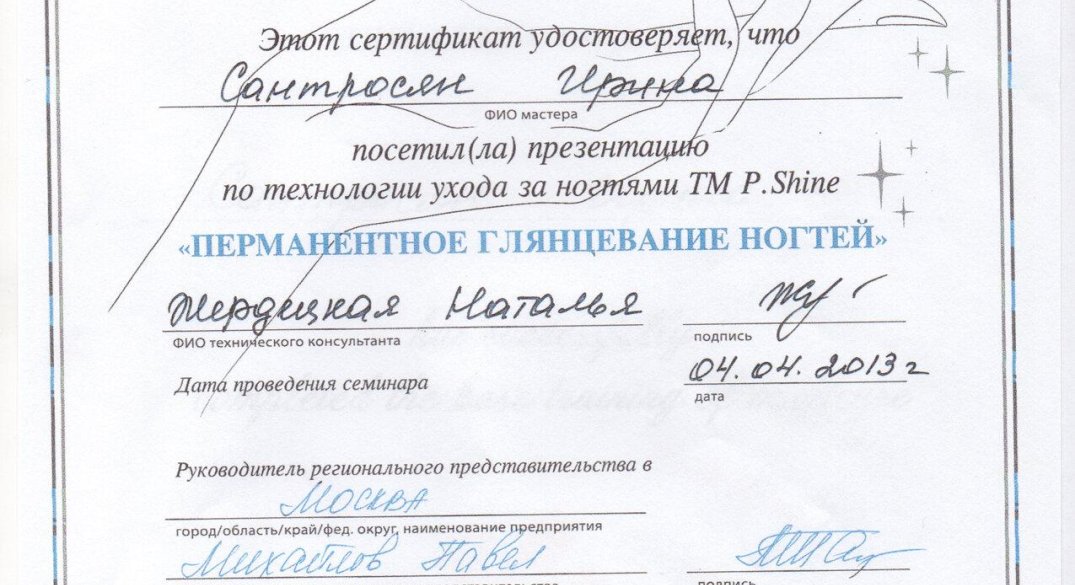 Этот сертификат удостоверяет, что
Сантросян Ирина
ФИО мастера
посетил(ла) презентацию
по технологии ухода за ногтями ТМ P.Shine
«ПЕРМАНЕНТНОЕ ГЛЯНЦЕВАНИЕ НОГТЕЙ»
Жердецкая Наталья
ФИО технического консультанта подпись
Дата проведения семинара 04.04.2013 г
дата
Руководитель регионального представительства в
Москва
город/область/край/фед. округ, наименование предприятия
Михайлов Павел
подпись